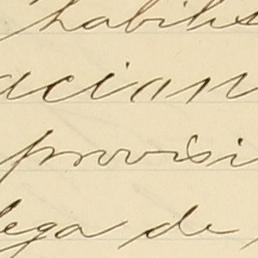 habili
acion
provisi
ega de